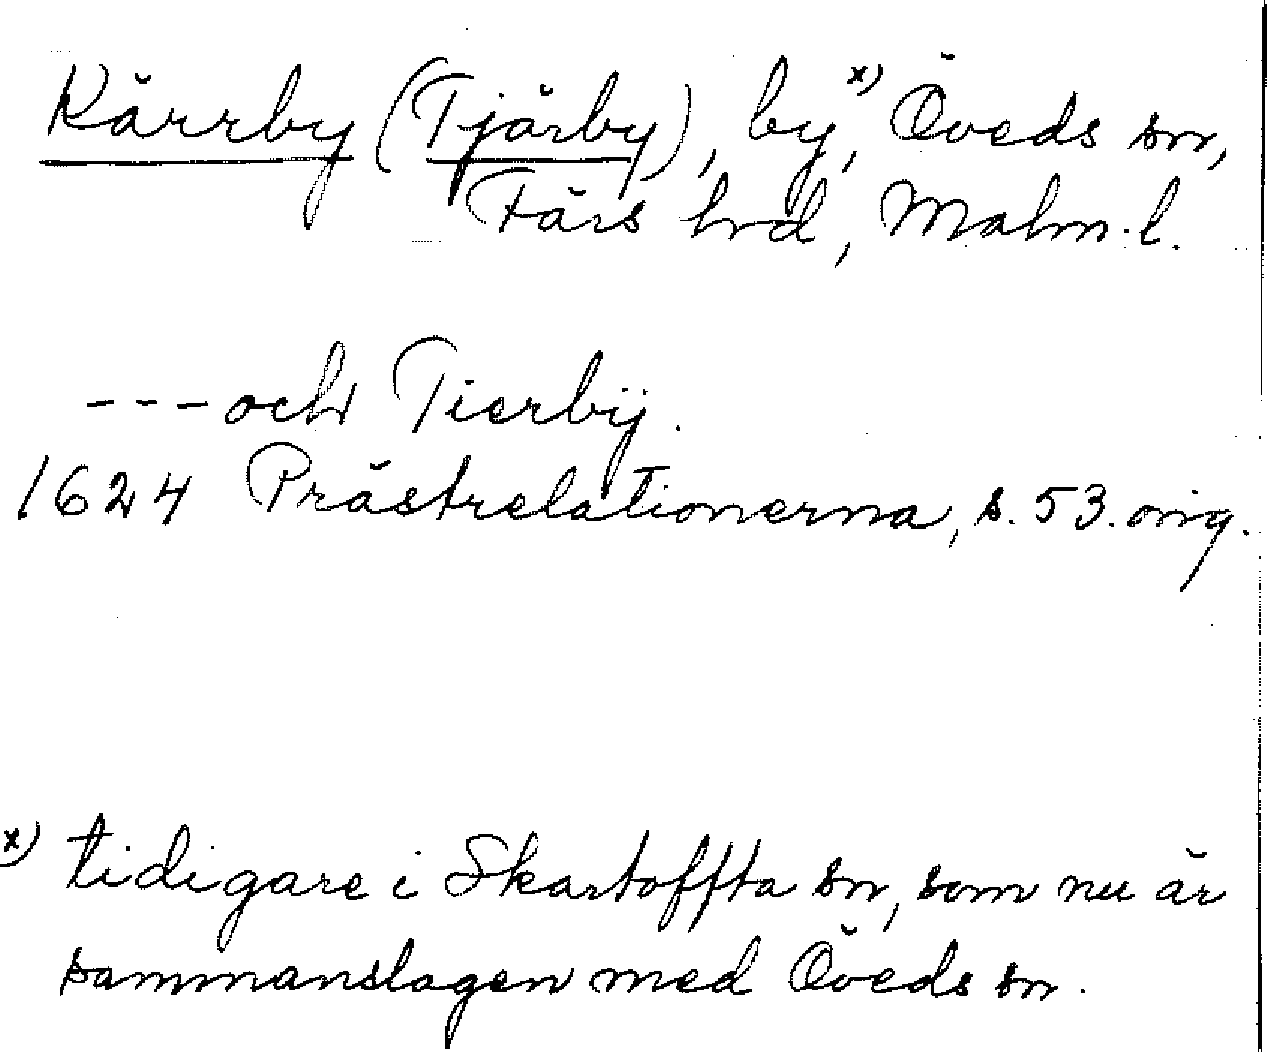 Kärrby (Tjärby), by, x) Öveds sn,
Färs hrd, Malm. l.
--- och Tierbÿ.
1624 Prästrelationerna, s. 53. orig.
x) tidigare i Skartoffta sn, som nu är
sammanslagen med Öveds sn.